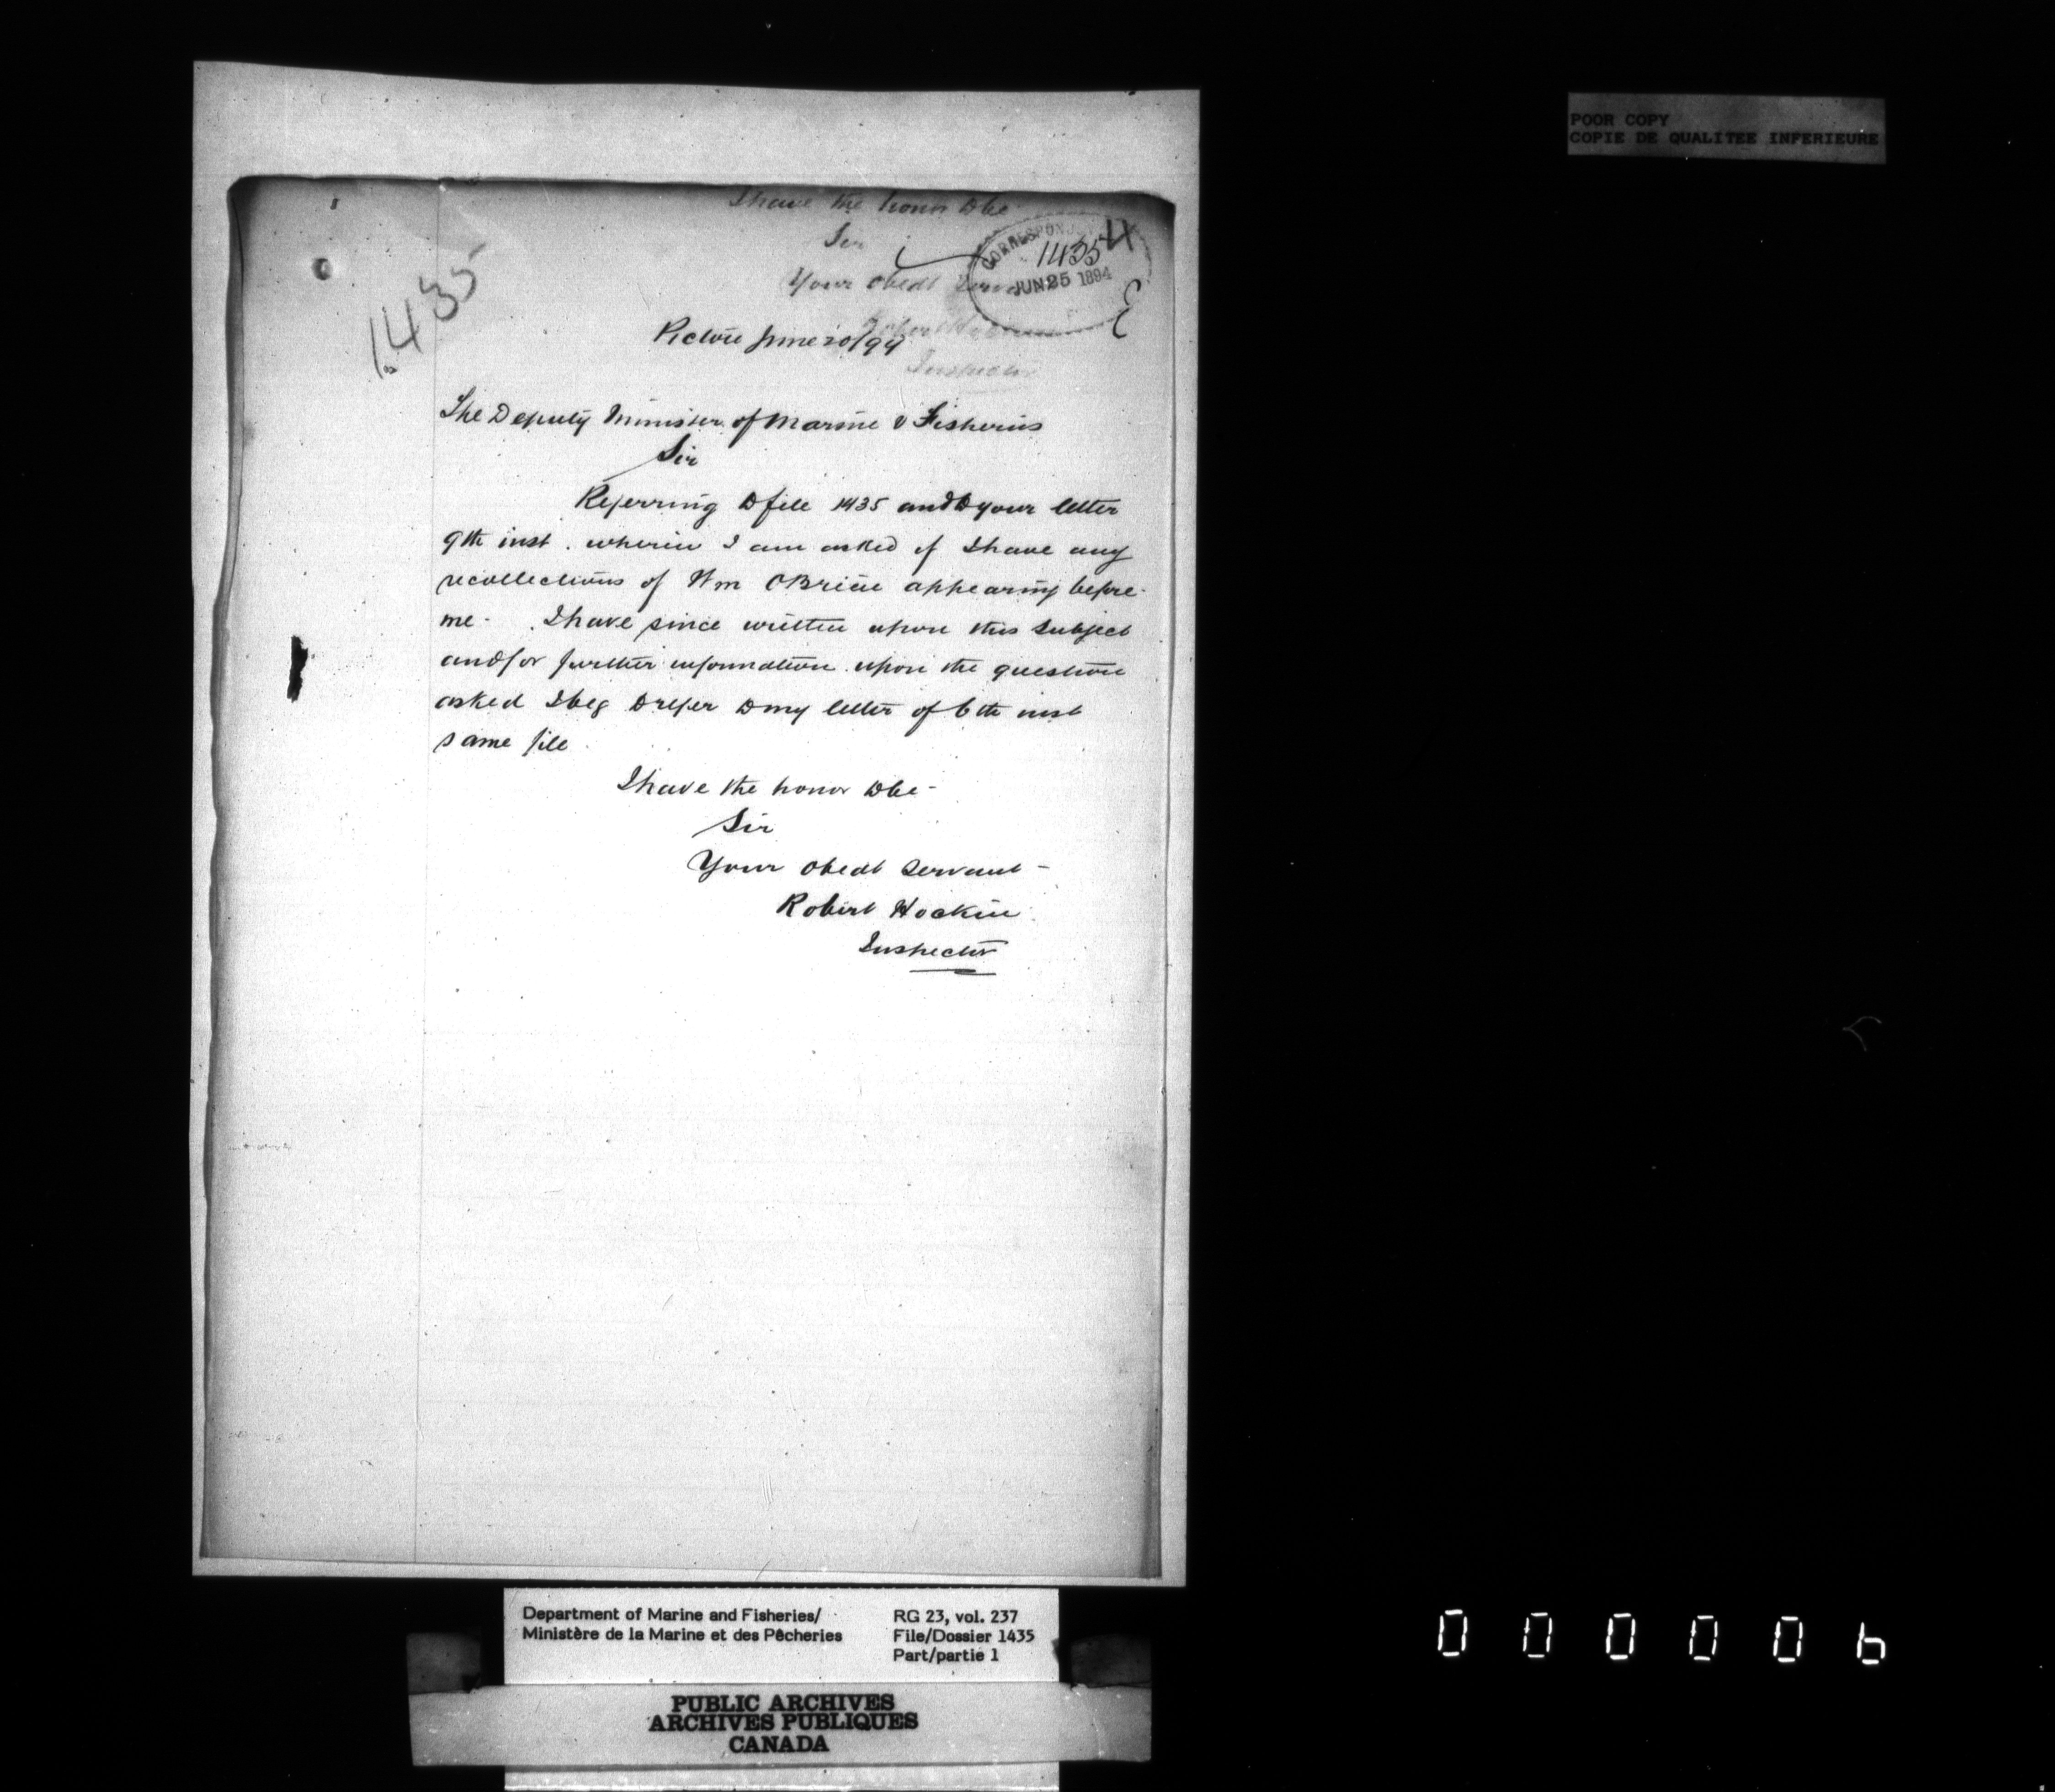 POOR COPY
COPIE DE QUALITEE INFERIEURE
I have the honor to be
Sir
Your obedt
Inspector
CORRESPON
1435 4
JUN 25 1894
1435
Pictou June 20/94
The Deputy Minister of Marine & Fisheries
Sir
Referring to file 1435 and to your letter
9th inst. wherein I am asked if I have any
recollections of Wm OBrien appearing before
me. I have since written upon this subject
and for further information upon the question
asked I beg to refer to my letter of 6th inst
same file
I have the honor to be -
Sir
Your obedt servant -
Robert Hockin
Inspector
Department of Marine and Fisheries/
Ministère de la Marine et des Pêcheries
RG 23, vol. 237
File/Dossier 1435
Part/partie 1
PUBLIC ARCHIVES
ARCHIVES PUBLIQUES
CANADA
000006